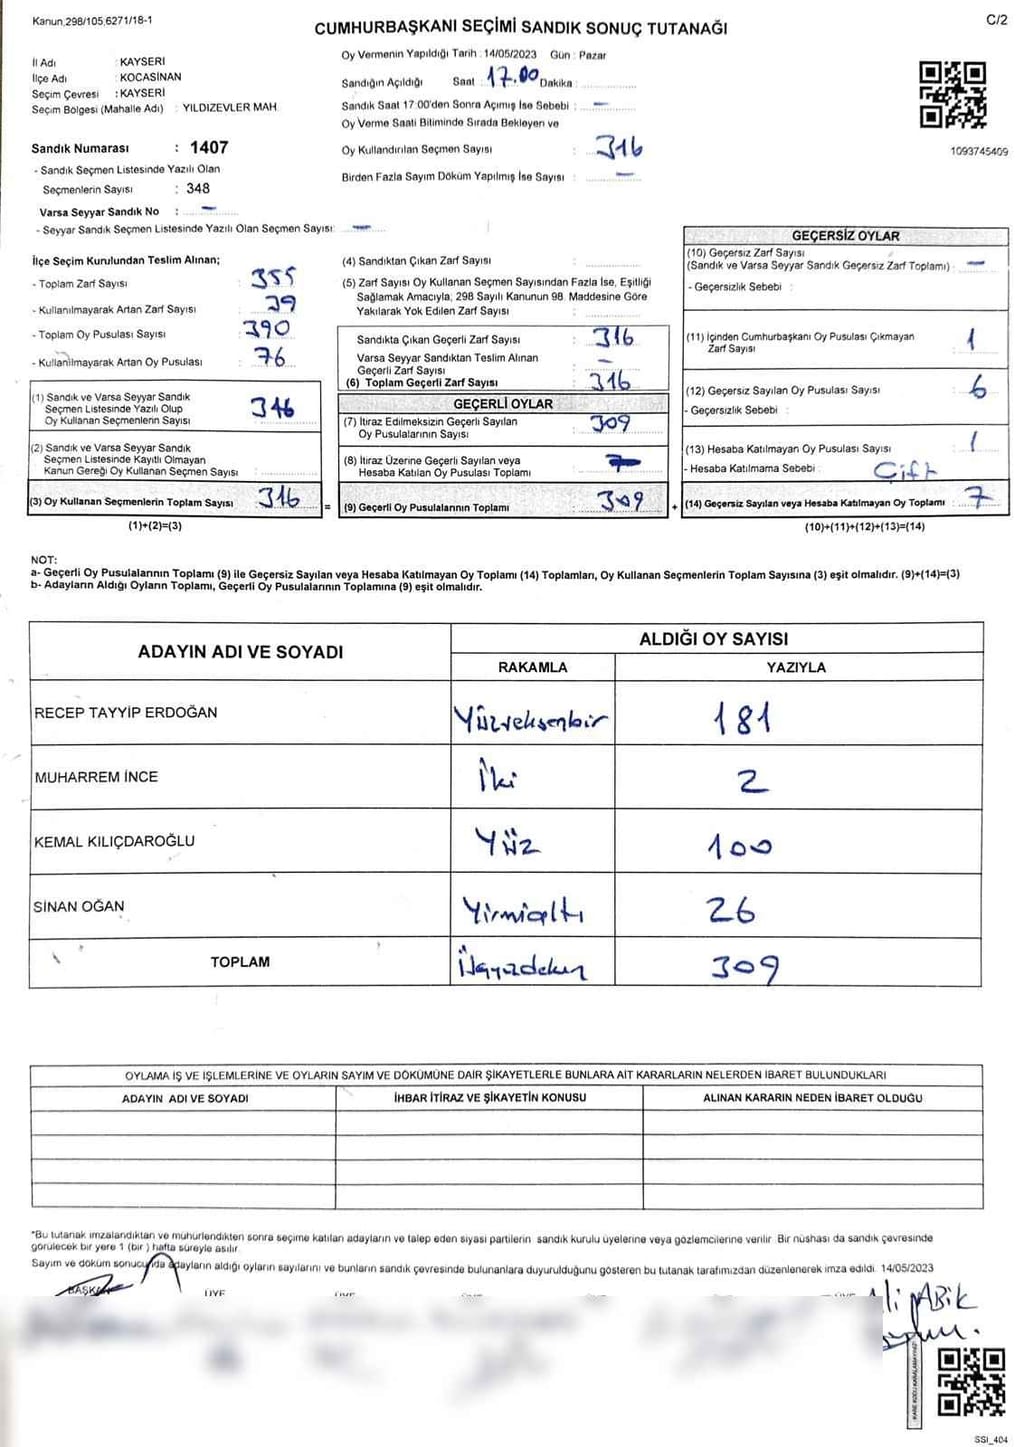 Kanun.298/105,6271/18-1
C/2
CUMHURBAŞKANI SEÇİMİ SANDIK SONUÇ TUTANAĞI
İl Adı : KAYSERİ
İlçe Adı : KOCASİNAN
Seçim Çevresi : KAYSERİ
Seçim Bölgesi (Mahalle Adı) : YILDIZEVLER MAH.
Sandık Numarası : 1407
- Sandık Seçmen Listesinde Yazılı Olan
Seçmenlerin Sayısı : 348
Varsa Seyyar Sandık No : –
- Seyyar Sandık Seçmen Listesinde Yazılı Olan Seçmen Sayısı: –
Oy Vermenin Yapıldığı Tarih : 14/05/2023 Gün : Pazar
Sandığın Açıldığı Saat : 17.00 Dakika :
Sandık Saat 17:00'den Sonra Açımış İse Sebebi : –
Oy Verme Saati Bitiminde Sırada Bekleyen ve
Oy Kullandırılan Seçmen Sayısı : 316
Birden Fazla Sayım Döküm Yapılmış İse Sayısı : –
1093745409
İlçe Seçim Kurulundan Teslim Alınan;
- Toplam Zarf Sayısı : 355
- Kullanılmayarak Artan Zarf Sayısı : 39
- Toplam Oy Pusulası Sayısı : 390
- Kullanılmayarak Artan Oy Pusulası : 76
(1) Sandık ve Varsa Seyyar Sandık
Seçmen Listesinde Yazılı Olup
Oy Kullanan Seçmenlerin Sayısı : 316
(2) Sandık ve Varsa Seyyar Sandık
Seçmen Listesinde Kayıtlı Olmayan
Kanun Gereği Oy Kullanan Seçmen Sayısı :
(3) Oy Kullanan Seçmenlerin Toplam Sayısı 316
(1)+(2)=(3)
(4) Sandıktan Çıkan Zarf Sayısı :
(5) Zarf Sayısı Oy Kullanan Seçmen Sayısından Fazla İse, Eşitliği
Sağlamak Amacıyla, 298 Sayılı Kanunun 98. Maddesine Göre
Yakılarak Yok Edilen Zarf Sayısı :
Sandıkta Çıkan Geçerli Zarf Sayısı : 316
Varsa Seyyar Sandıktan Teslim Alınan
Geçerli Zarf Sayısı : –
(6) Toplam Geçerli Zarf Sayısı : 316
GEÇERLİ OYLAR
(7) İtiraz Edilmeksizin Geçerli Sayılan
Oy Pusulalarının Sayısı : 309
(8) İtiraz Üzerine Geçerli Sayılan veya
Hesaba Katılan Oy Pusulası Toplamı :
= (9) Geçerli Oy Pusulalarının Toplamı : 309
GEÇERSİZ OYLAR
(10) Geçersiz Zarf Sayısı
(Sandık ve Varsa Seyyar Sandık Geçersiz Zarf Toplamı) : –
- Geçersizlik Sebebi :
(11) İçinden Cumhurbaşkanı Oy Pusulası Çıkmayan
Zarf Sayısı : 1
(12) Geçersiz Sayılan Oy Pusulası Sayısı : 6
- Geçersizlik Sebebi :
(13) Hesaba Katılmayan Oy Pusulası Sayısı : 1
- Hesaba Katılmama Sebebi : Çift
+ (14) Geçersiz Sayılan veya Hesaba Katılmayan Oy Toplamı : 7
(10)+(11)+(12)+(13)=(14)
NOT:
a- Geçerli Oy Pusulalarının Toplamı (9) ile Geçersiz Sayılan veya Hesaba Katılmayan Oy Toplamı (14) Toplamları, Oy Kullanan Seçmenlerin Toplam Sayısına (3) eşit olmalıdır. (9)+(14)=(3)
b- Adayların Aldığı Oyların Toplamı, Geçerli Oy Pusulalarının Toplamına (9) eşit olmalıdır.
ADAYIN ADI VE SOYADI
ALDIĞI OY SAYISI
RAKAMLA YAZIYLA
RECEP TAYYİP ERDOĞAN Yüzseksenbir 181
MUHARREM İNCE İki 2
KEMAL KILIÇDAROĞLU Yüz 100
SİNAN OĞAN Yirmialtı 26
TOPLAM Üçyüzdokuz 309
OYLAMA İŞ VE İŞLEMLERİNE VE OYLARIN SAYIM VE DÖKÜMÜNE DAİR ŞİKAYETLERLE BUNLARA AİT KARARLARIN NELERDEN İBARET BULUNDUKLARI
ADAYIN ADI VE SOYADI İHBAR İTİRAZ VE ŞİKAYETİN KONUSU ALINAN KARARIN NEDEN İBARET OLDUĞU
*Bu tutanak imzalandıktan ve mühürlendikten sonra seçime katılan adayların ve talep eden siyasi partilerin sandık kurulu üyelerine veya gözlemcilerine verilir. Bir nüshası da sandık çevresinde
görülecek bir yere 1 (bir ) hafta süreyle asılır.
Sayım ve döküm sonucunda adayların aldığı oyların sayılarını ve bunların sandık çevresinde bulunanlara duyurulduğunu gösteren bu tutanak tarafımızdan düzenlenerek imza edildi. 14/05/2023
BAŞKAN ÜYE
Ali ABİK
SSI_404